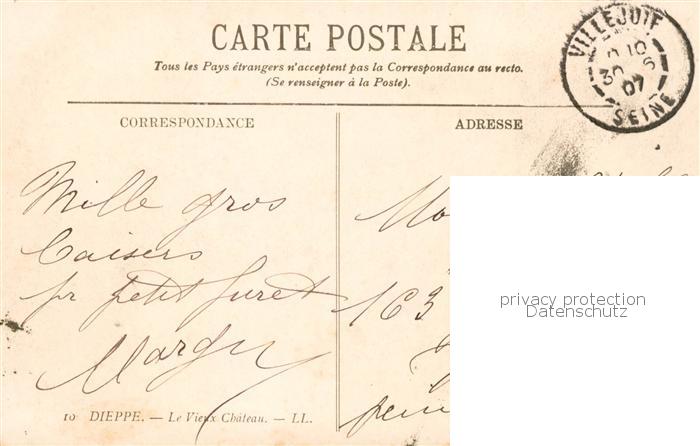 CARTE POSTALE
Tous les Pays étrangers n'acceptent pas la Correspondance au recto.
(Se renseigner à la Poste).
VILLEJUIF
30 5
07
SEINE
CORRESPONDANCE
Mille gros
baisers
pr petit furet
Margy
ADRESSE
163
privacy protection
Datenschutz
10 DIEPPE. — Le Vieux Château. — LL.